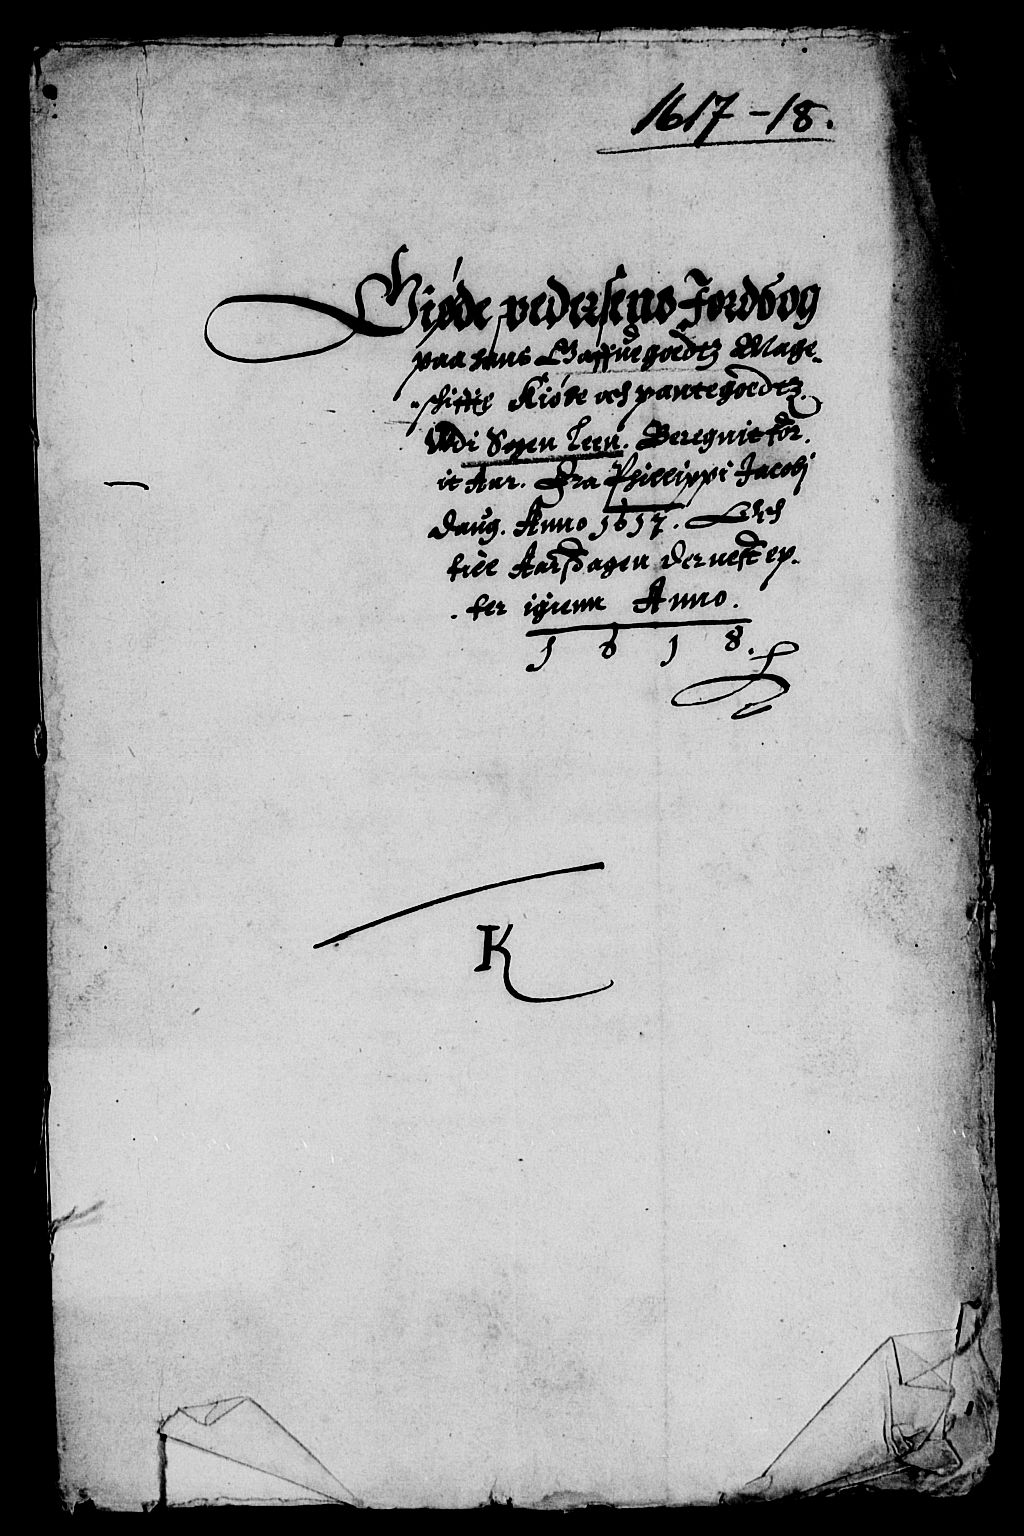 1617-18.
Giøde pedersens Jordbog
paa hans Gaffuegoedtz Mage-
schifftte Kiøbe och pantegoedtz
Udi Sogen Leen. Beregnit for
it Aar. Fra Phillippi Jacobj
Daug. Anno 1617. Och
tiel Aarsdagen dernest ep-
ter igienn Anno.
1 6 1 8.
K